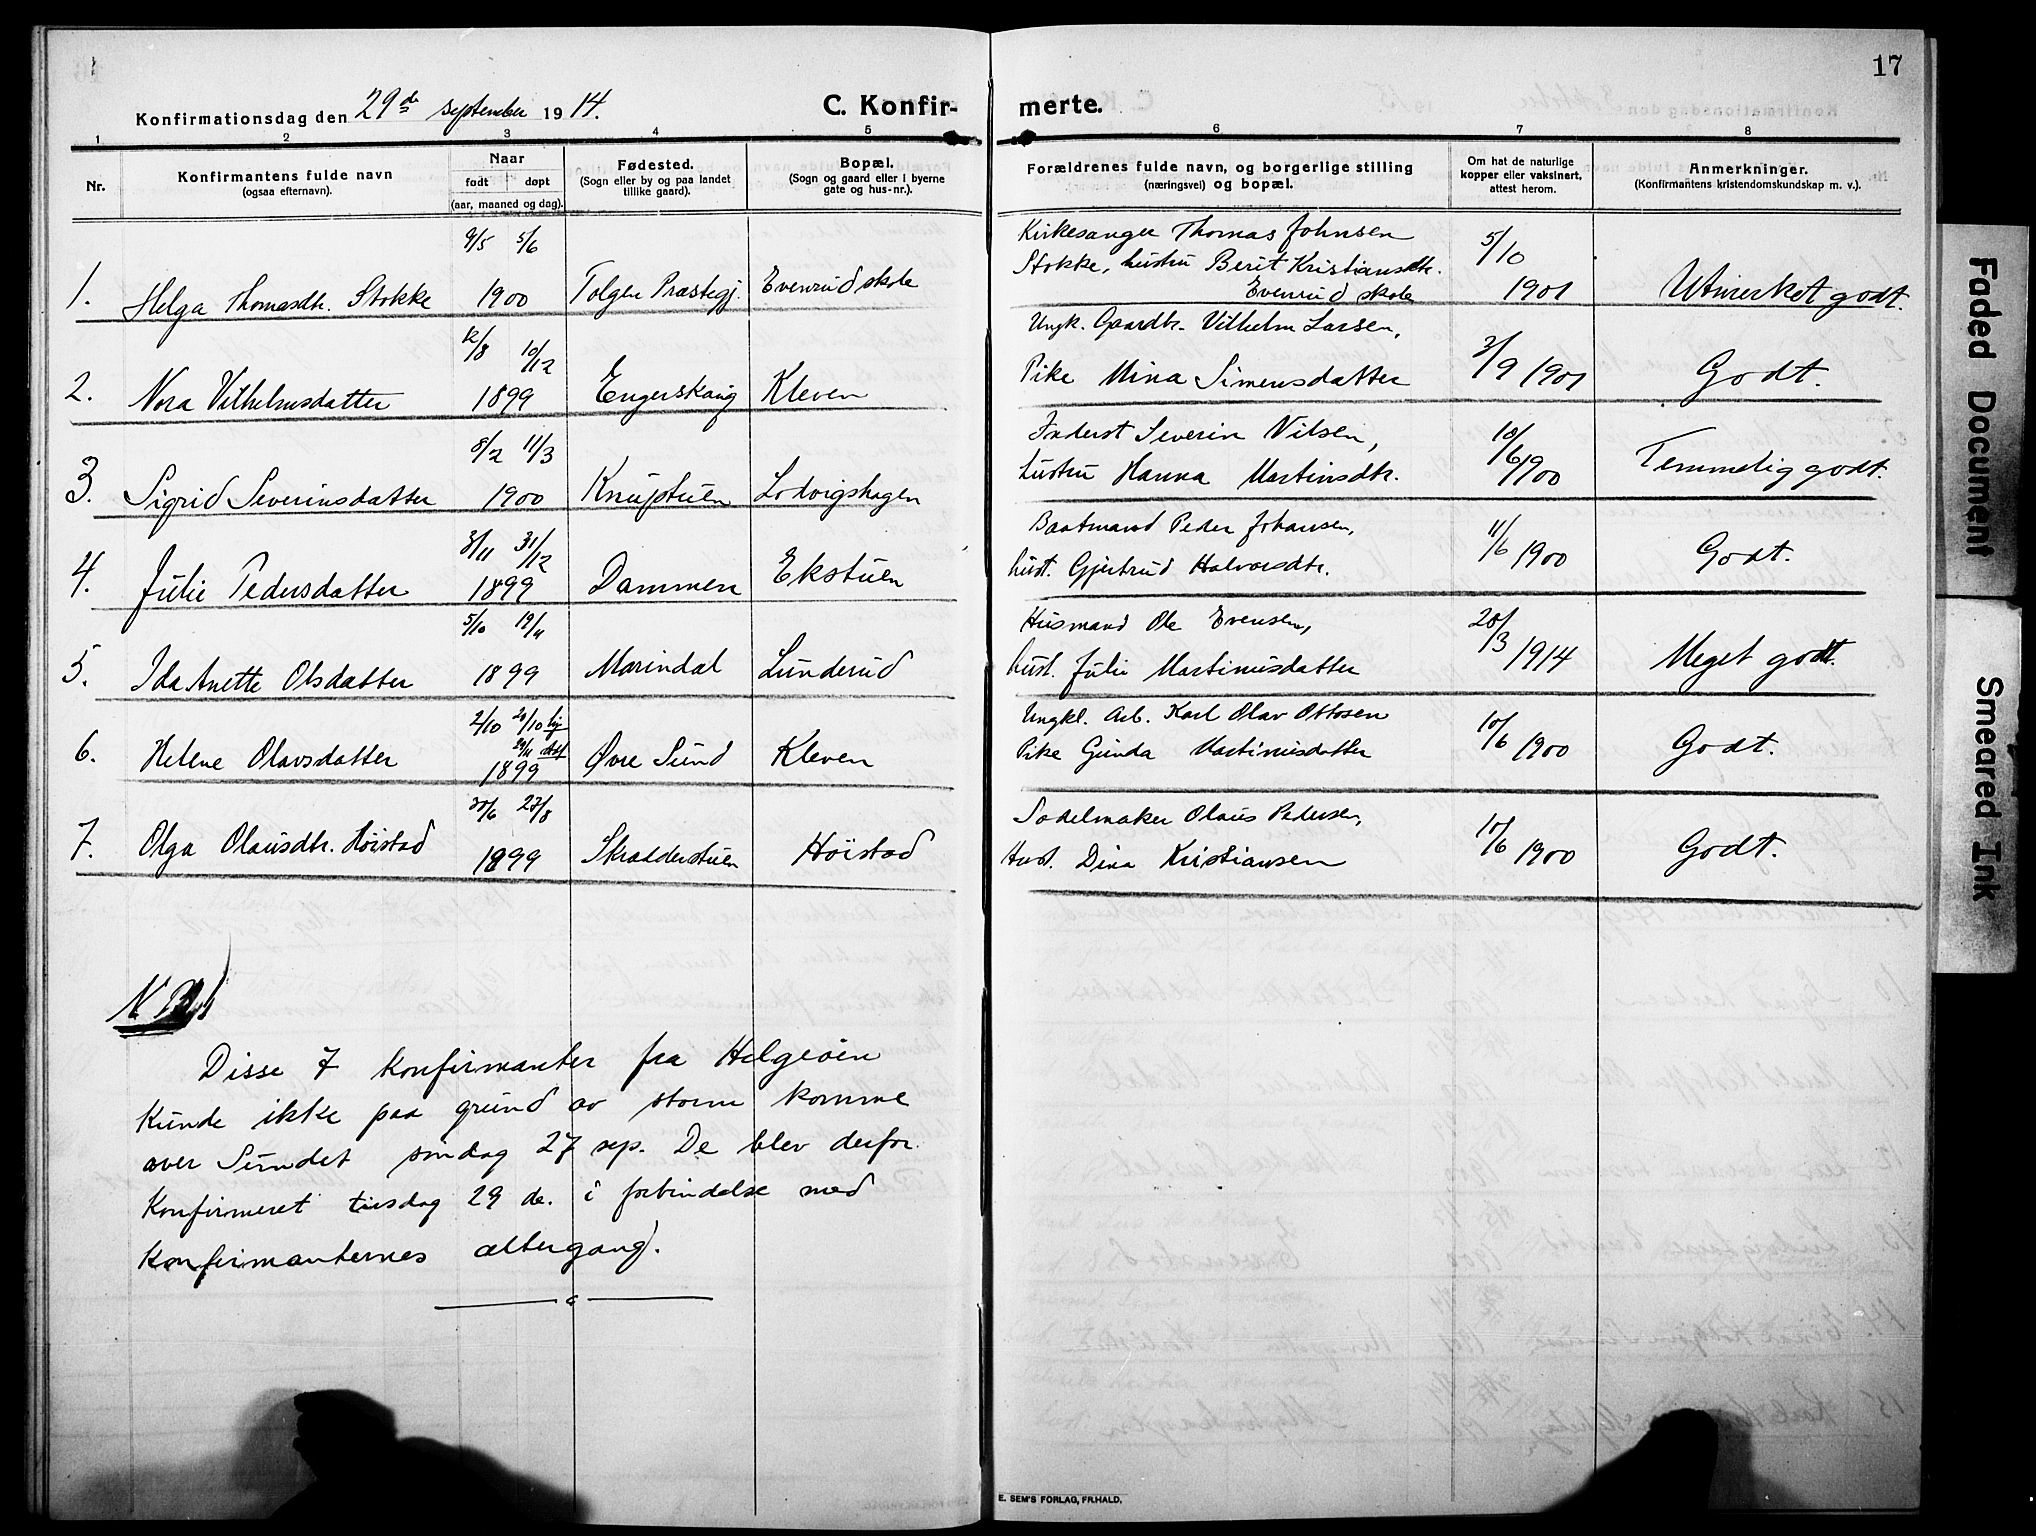 17
Konfirmationsdag den 29de september 1914.
C. Konfirmerte.
1 2 3 4 5 6 7 8
Nr.
Konfirmantens fulde navn
(ogsaa efternavn).
Naar
født døpt
(aar, maaned og dag).
Fødested.
(Sogn eller by og paa landet
tillike gaard).
Bopæl.
(Sogn og gaard eller i byerne
gate og hus-nr.).
Forældrenes fulde navn, og borgerlige stilling
(næringsvei) og bopæl.
Om hat de naturlige
kopper eller vaksinert,
attest herom.
Anmerkninger.
(Konfirmantens kristendomskundskap m. v.).
9/5 5/6 Kirkesanger Thomas Johnsen 5/10
Stokke, hustru Berit Kristiansdtr.
1. Helga Thomasdtr. Stokke 1900 Tolgen Præstegj. Evenrud skole Evenrud skole 1901 Utmerket godt.
12/8 10/12 Ungk. Gaardbr. Vilhelm Larsen,
2. Nora Vilhelmsdatter 1899 Engerskaug Kleven Pike Mina Simensdatter 3/9 1901 Godt.
8/2 11/3 Inderst Severin Nilsen, 18/6
3. Sigrid Severinsdatter 1900 Knupstuen Lodvigshagen hustru Hanna Martinsdtr. 1900 Temmelig godt.
3/11 31/12 Baatmand Peder Johansen, 11/6
4. Julie Pedersdatter 1899 Dammen Ekstuen hust. Gjertrud Halvorsdtr. 1900 Godt.
5/10 19/11 Husmand Ole Evensen, 28/3
5. Ida Anette Olsdatter 1899 Marindal Lunderud hust. Julie Martinusdatter 1914 Meget godt.
2/10 20/10 hj. Ungkl. Arb. Karl Olav Ottosen 10/6
6. Helene Olavsdatter 1899 Øvre Sund Kleven Pike Gunda Martinusdatter 1900 Godt.
30/6 27/8 Sadelmaker Olaus Pedersen, 10/6
7. Olga Olausdtr. Høistad 1899 Skrædderstuen Høistad Hust. Dina Kristiansen 1900 Godt.
N.B.!
Disse 7 konfirmanter fra Helgeøen
kunde ikke paa grund av storm komme
over Sundet søndag 27 sep. De blev derfor
konfirmeret tirsdag 29 de. i forbindelse med
konfirmanternes altergang.
E. SEM'S FORLAG, FR.HALD.
Faded Document
Smeared Ink